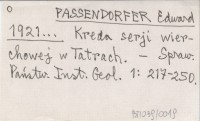 O
PASSENDORFER Edward
1921... Kreda serji wier-
chowej w Tatrach. – Spraw.
Państw. Inst. Geol. 1: 217-250.